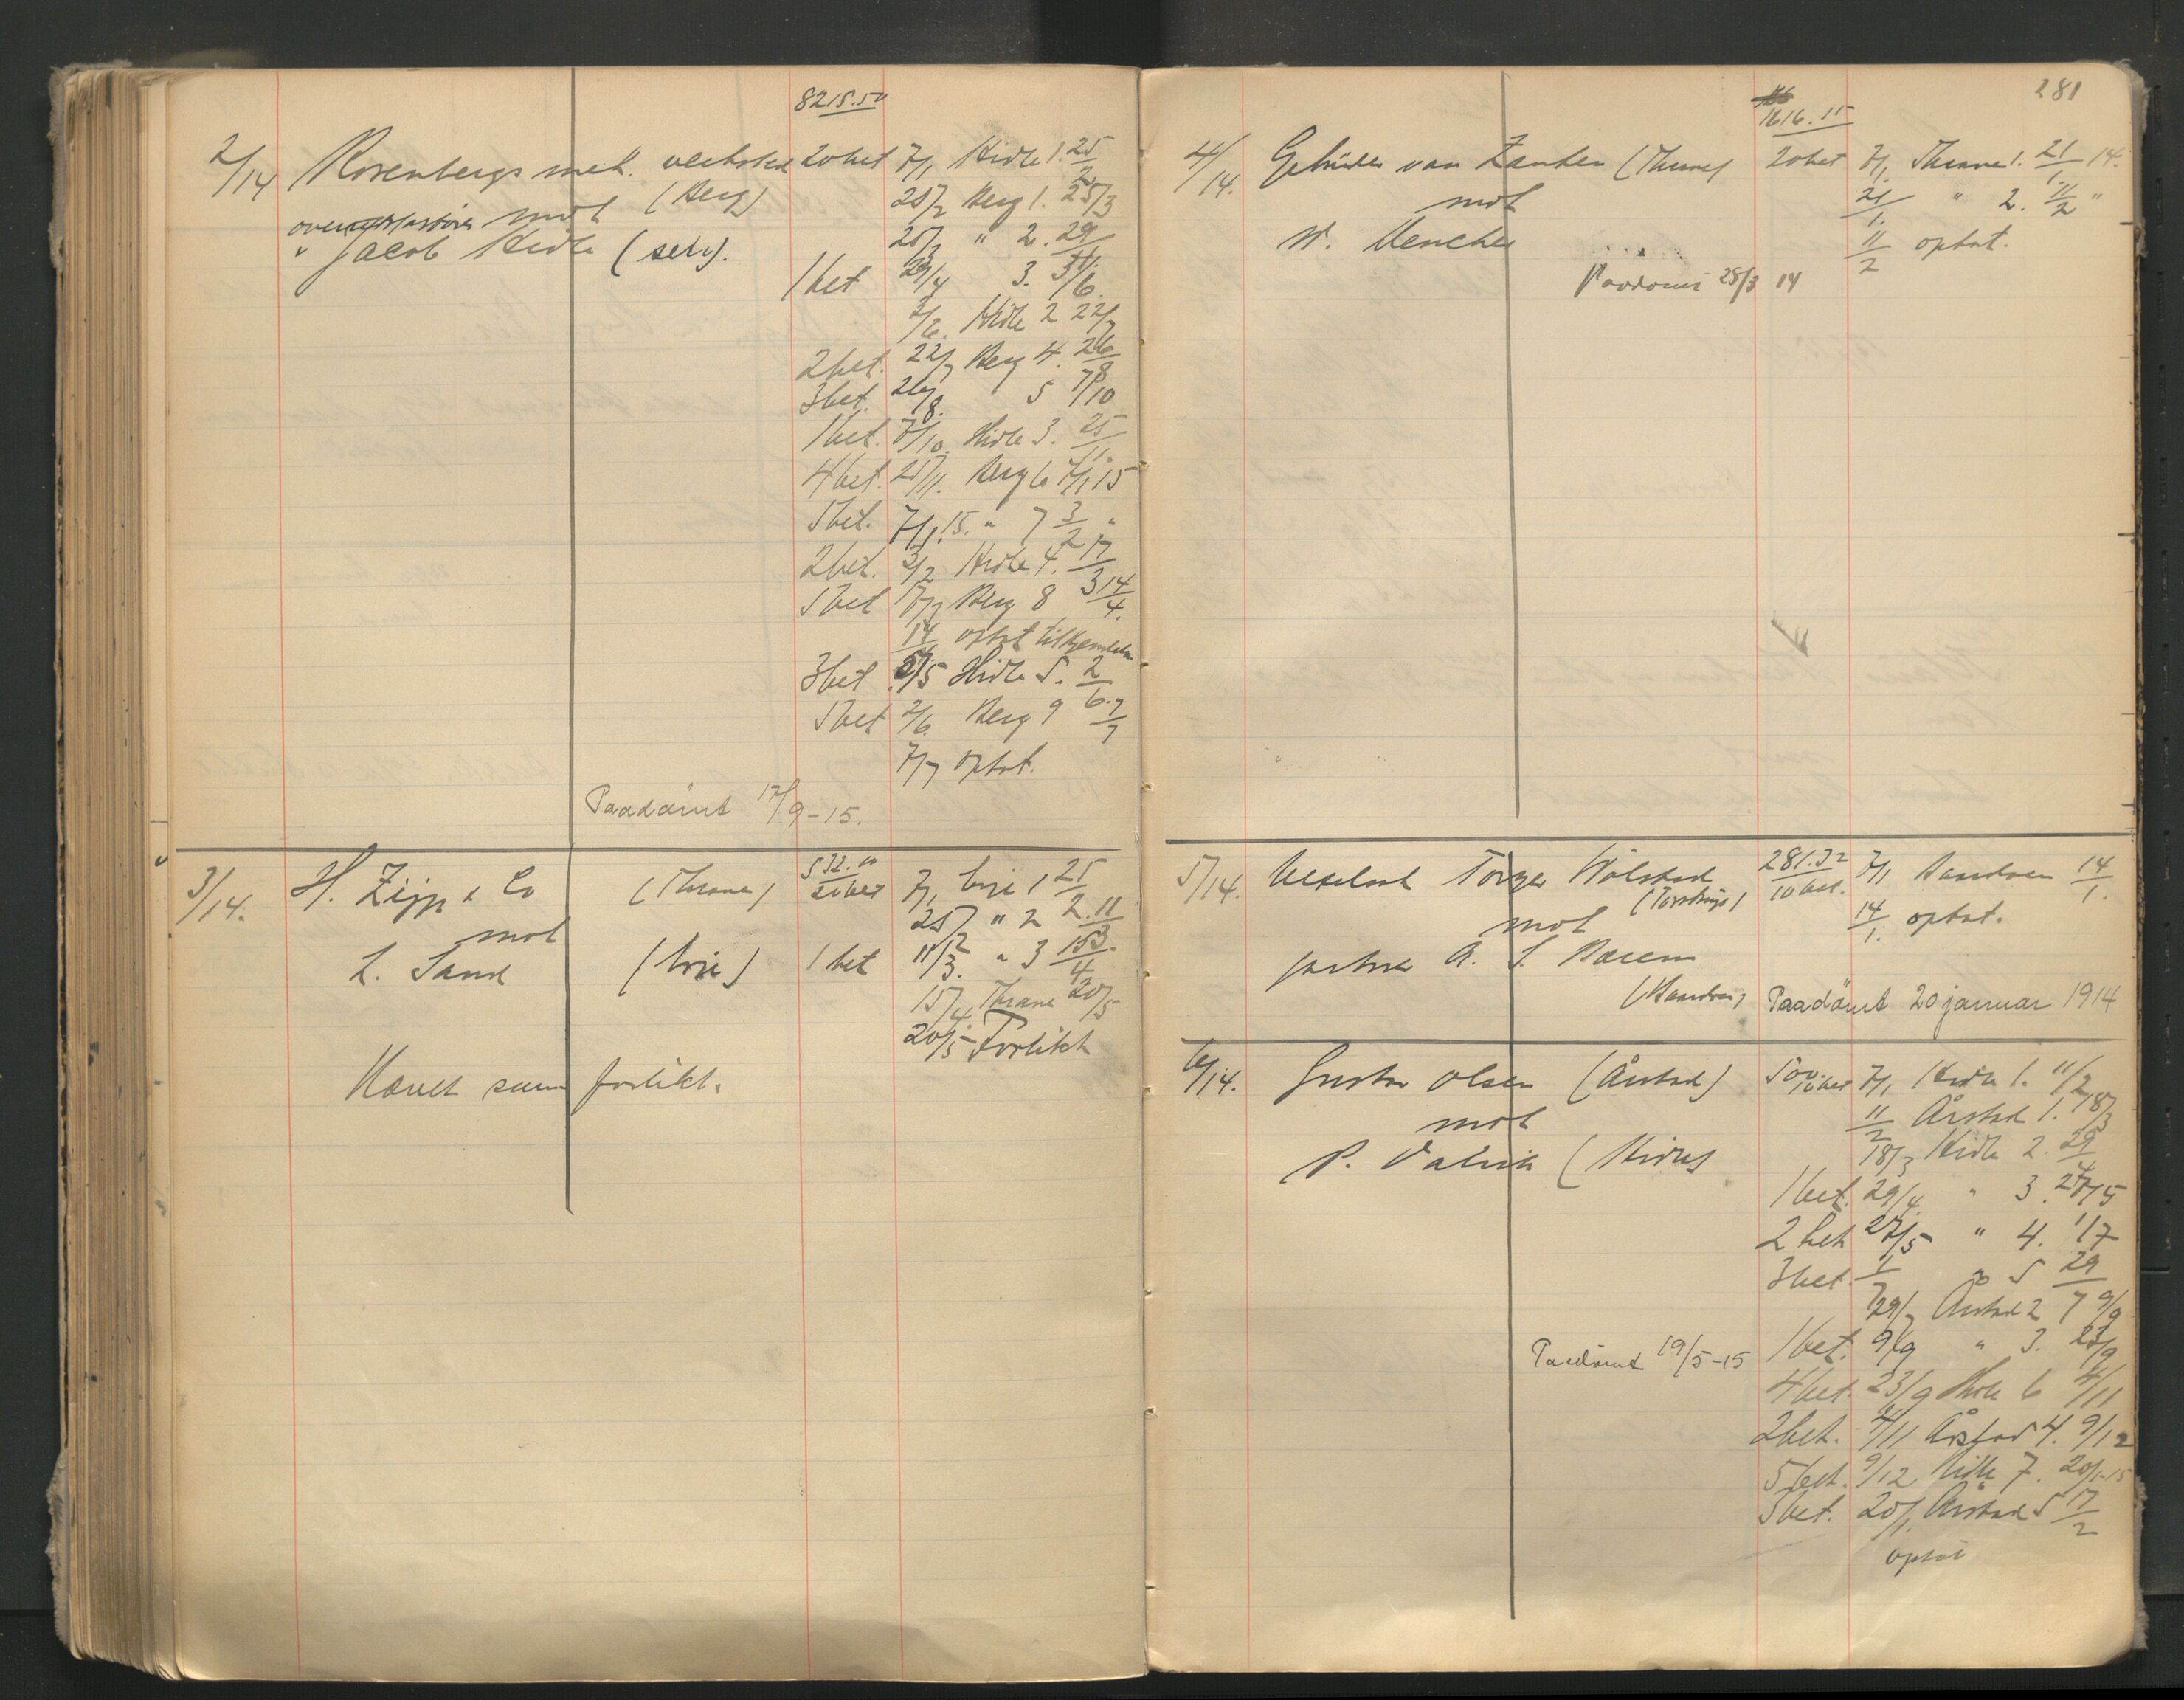 8215.50
2/14 Rosenbergs mek. verksted 20 bet 7/1 Hidle 1. 25/2
(Berg) 25/2 Berg 1. 25/3
overretssakfører mot 25/3 " 2. 29/4
" Jacob Hidle (selv).
1 bet 29/4 3. 3/6.
3/6. Hidle 2 22/7
2 bet. 22/7 Berg 4. 26/8
3 bet. 26/8. 5 7/10
1 bet. 7/10. Hidle 3. 25/11.
4 bet. 25/11. Berg 6 7/1 15
5 bet. 7/1.15. " 7 3/2 "
2 bet. 3/2 Hidle 4. 17/3
5 bet 17/3 Berg 8 14/4.
14/4 optat til kjendelse
3 bet 5/5 Hidle 5. 2/6.
5 bet 2/6. Berg 9 7/7
7/7 optat.
Paadömt 17/9-15.
3/14. H. Zipp & Co (Thrane) 532.00 20 bet 7/1 1 25/2.
mot 25/2 " 2 11/3.
L. Sand 1 bet 11/3. " 3 15/4
15/4. Thrane 20/5
20/5 Forlikt
Hævet som forlikt.
281
1616.15
4/14. Gebrüder van Zanten (Thrane) 20 bet 7/1. Thrane 1. 21/1. 14.
mot 21/1. " 2. 11/2 "
W. Mencher 11/2 optat.
Paadömt 28/3 14
5/14. Torger Wölstad 281.32 10 bet. 7/1 Sandven 14/1.
mot 14/1. optat.
A. S.
(Sandven) Paadömt 20 januar 1914
6/14. Gustav Olsen (Årstad) 500.- 10 bet 7/1 Hidle 1. 11/2
mot 11/2 Årstad 1. 18/3
P. (Hidle) 18/3 Hidle 2. 29/4
1 bet. 29/4. " 3. 27/5
2 bet 27/5 " 4. 1/7
3 bet. 1/7 " 5 29/7
29/7 Årstad 2 9/9
Paadömt 19/5-15 1 bet. 9/9 " 3. 23/9
4 bet. 23/9 Hidle 6 4/11
2 bet. 4/11 Årstad 4. 9/12
5 bet. 9/12 Hidle 7. 20/1-15
3 bet. 20/1. Årstad 5 17/2
optat